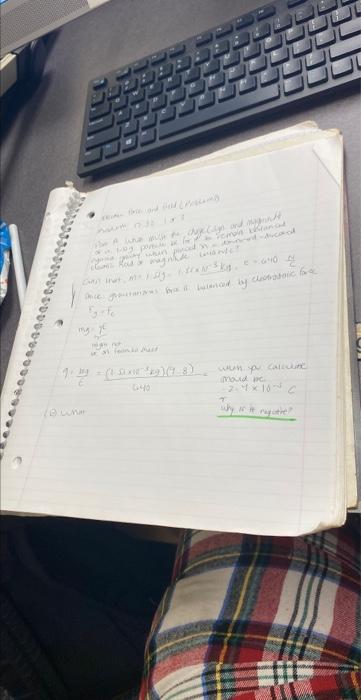 Electric Force and Field (Problems)
Problem 17.32 1 of 2
Part A What must the charge (sign and magnitude
of a 1.51g particle be for it to remain balanced
against gravity when placed in a downward-directed
electric field of magnitude 640 N/C?
Given that, m = 1.51g = 1.51 x 10⁻³ kg, E = 640 N/C
Since gravitational force is balanced by electrostatic force
Fg = Fe
mg = qE
might not
be on formula sheet
q = mg/E = (1.51 x10⁻³ kg)(9.8)/640 =
when you calculate
should be
-2.4 x 10⁻⁵ C
why is it negative?
(B) What